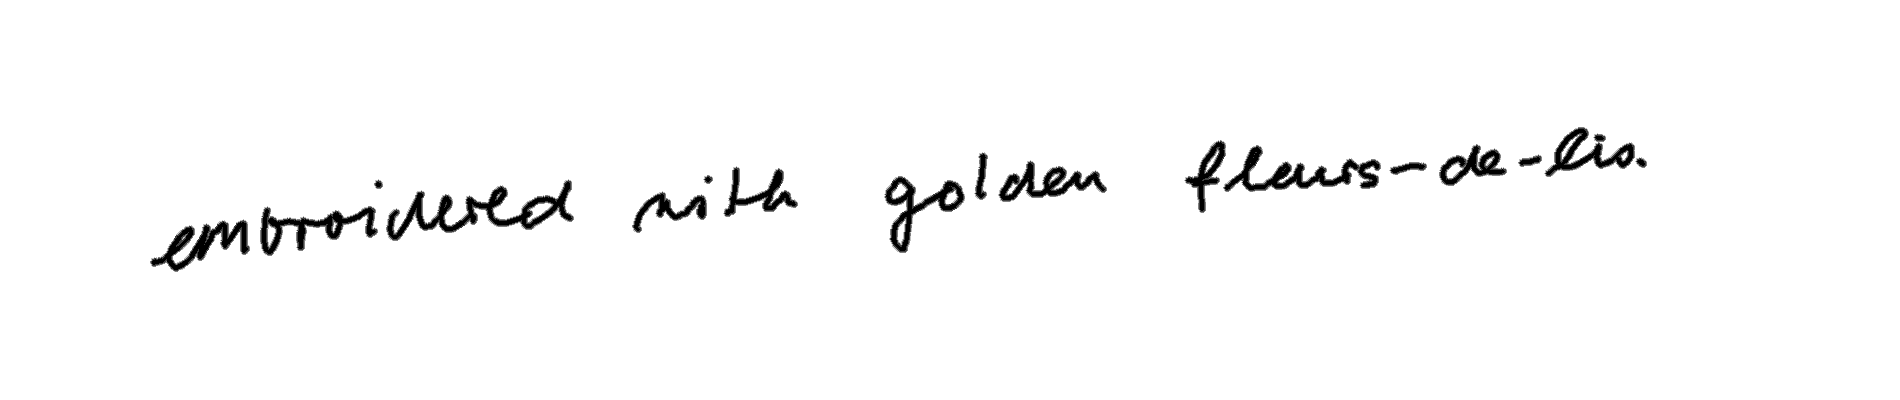 embroidered with golden fleurs-de-lis.